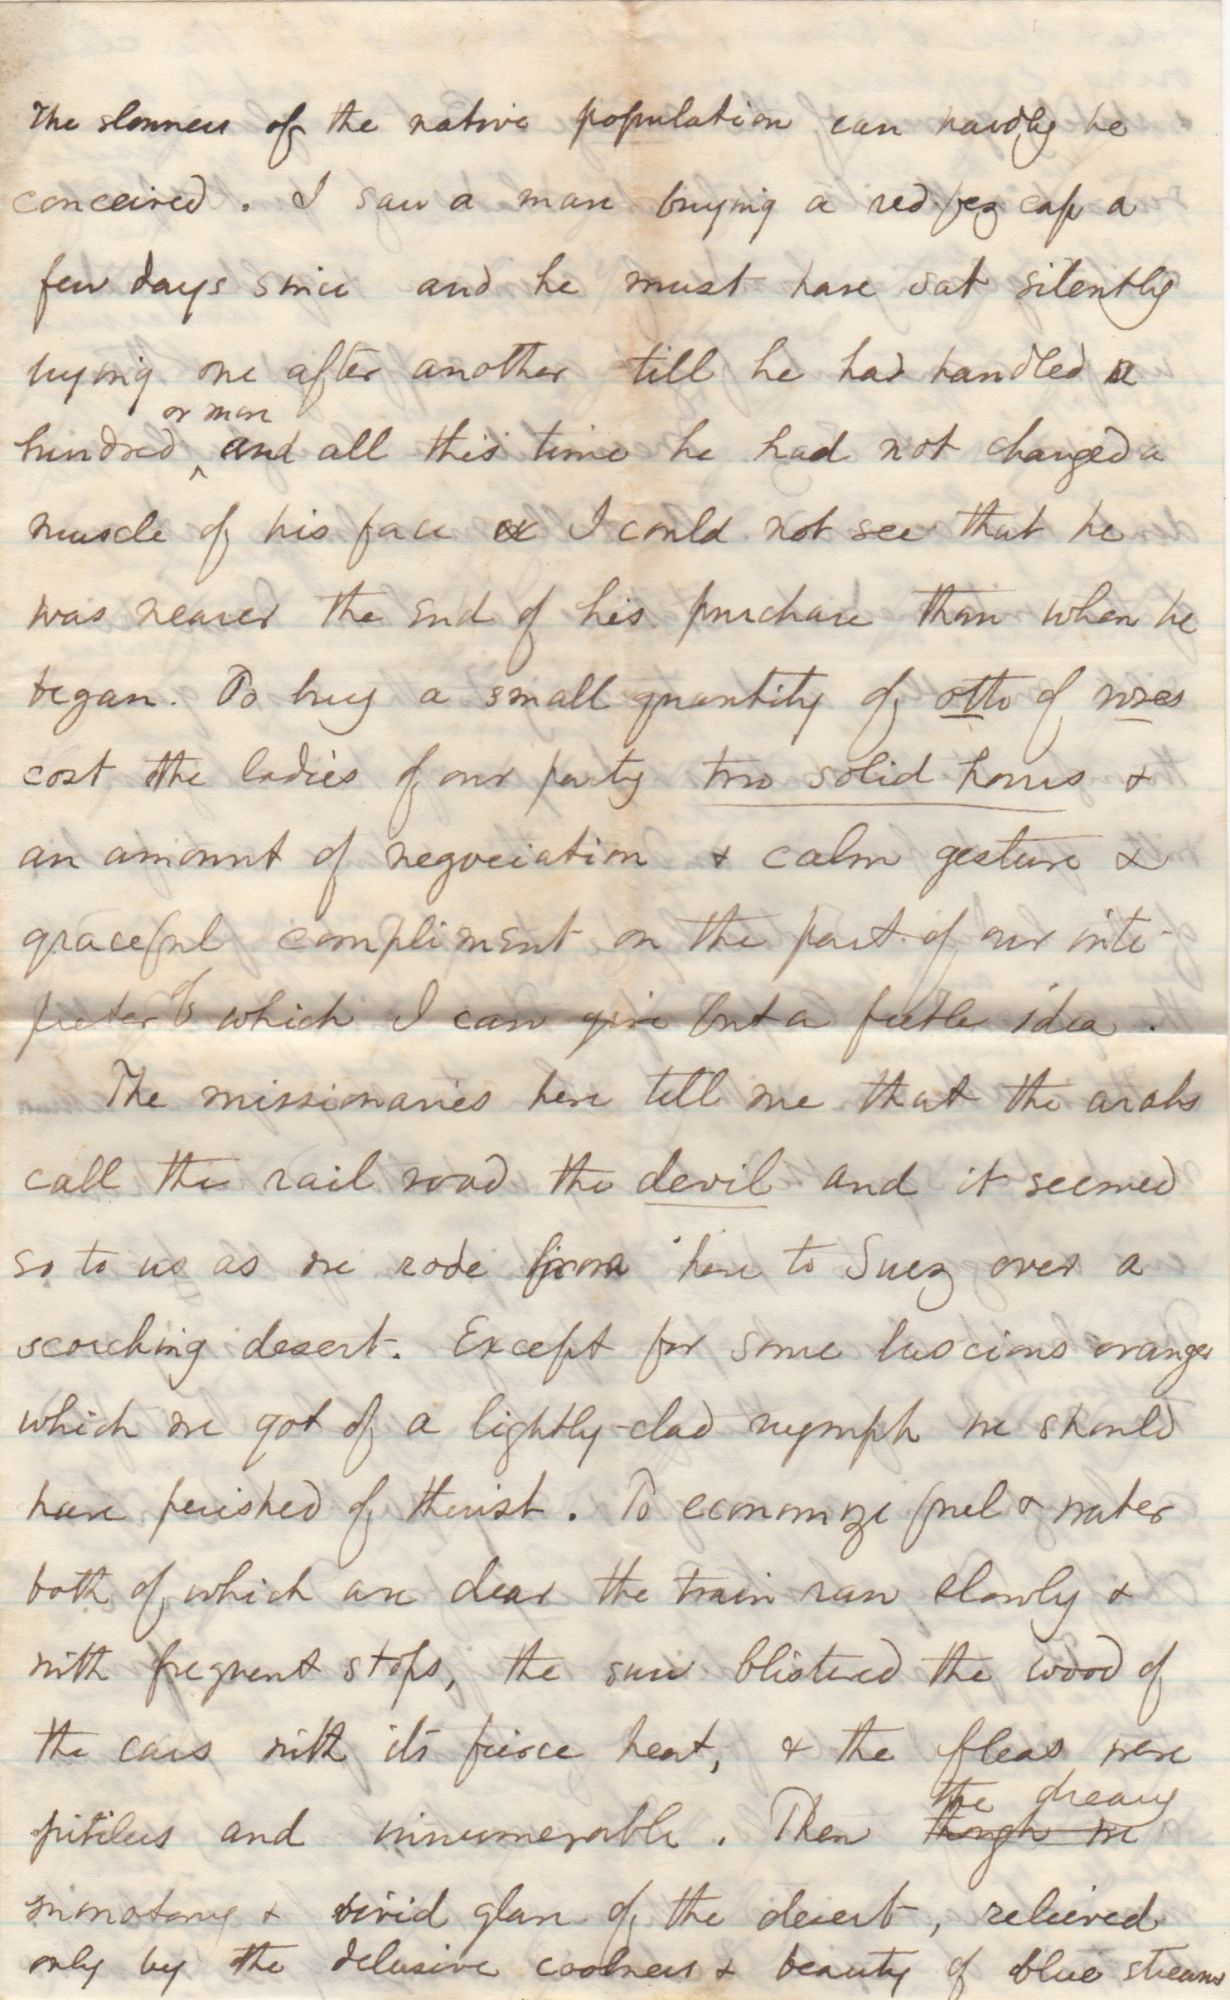 The slowness of the native population can hardly be
conceived. I saw a man buying a red fez cap a
few days since and he must have sat silently
trying one after another till he had handled a
or more
hundred ^ and all this time he had not changed a
muscle of his face & I could not see that he
was nearer the end of his purchase than when he
began. To buy a small quantity of otto of roses
cost the ladies of our party two solid hours &
an amount of negociation & calm gesture &
graceful compliment on the part of our inte-
preter of which I can give but a feeble idea.
The missionaries here tell me that the arabs
call the rail road the devil and it seemed
so to us as we rode from here to Suez over a
scorching desert. Except for some luscious oranges
which we got of a lightly-clad nymph we should
have perished of thirst. To economize fuel & water
both of which are dear the train ran slowly &
with frequent stops, the sun blistered the wood of
the cars with its fierce heat, & the fleas were
the dreary
pitiless and innumerable. Then though we
monotony & vivid glare of the desert, relieved
only by the delusive coolness & beauty of blue streams